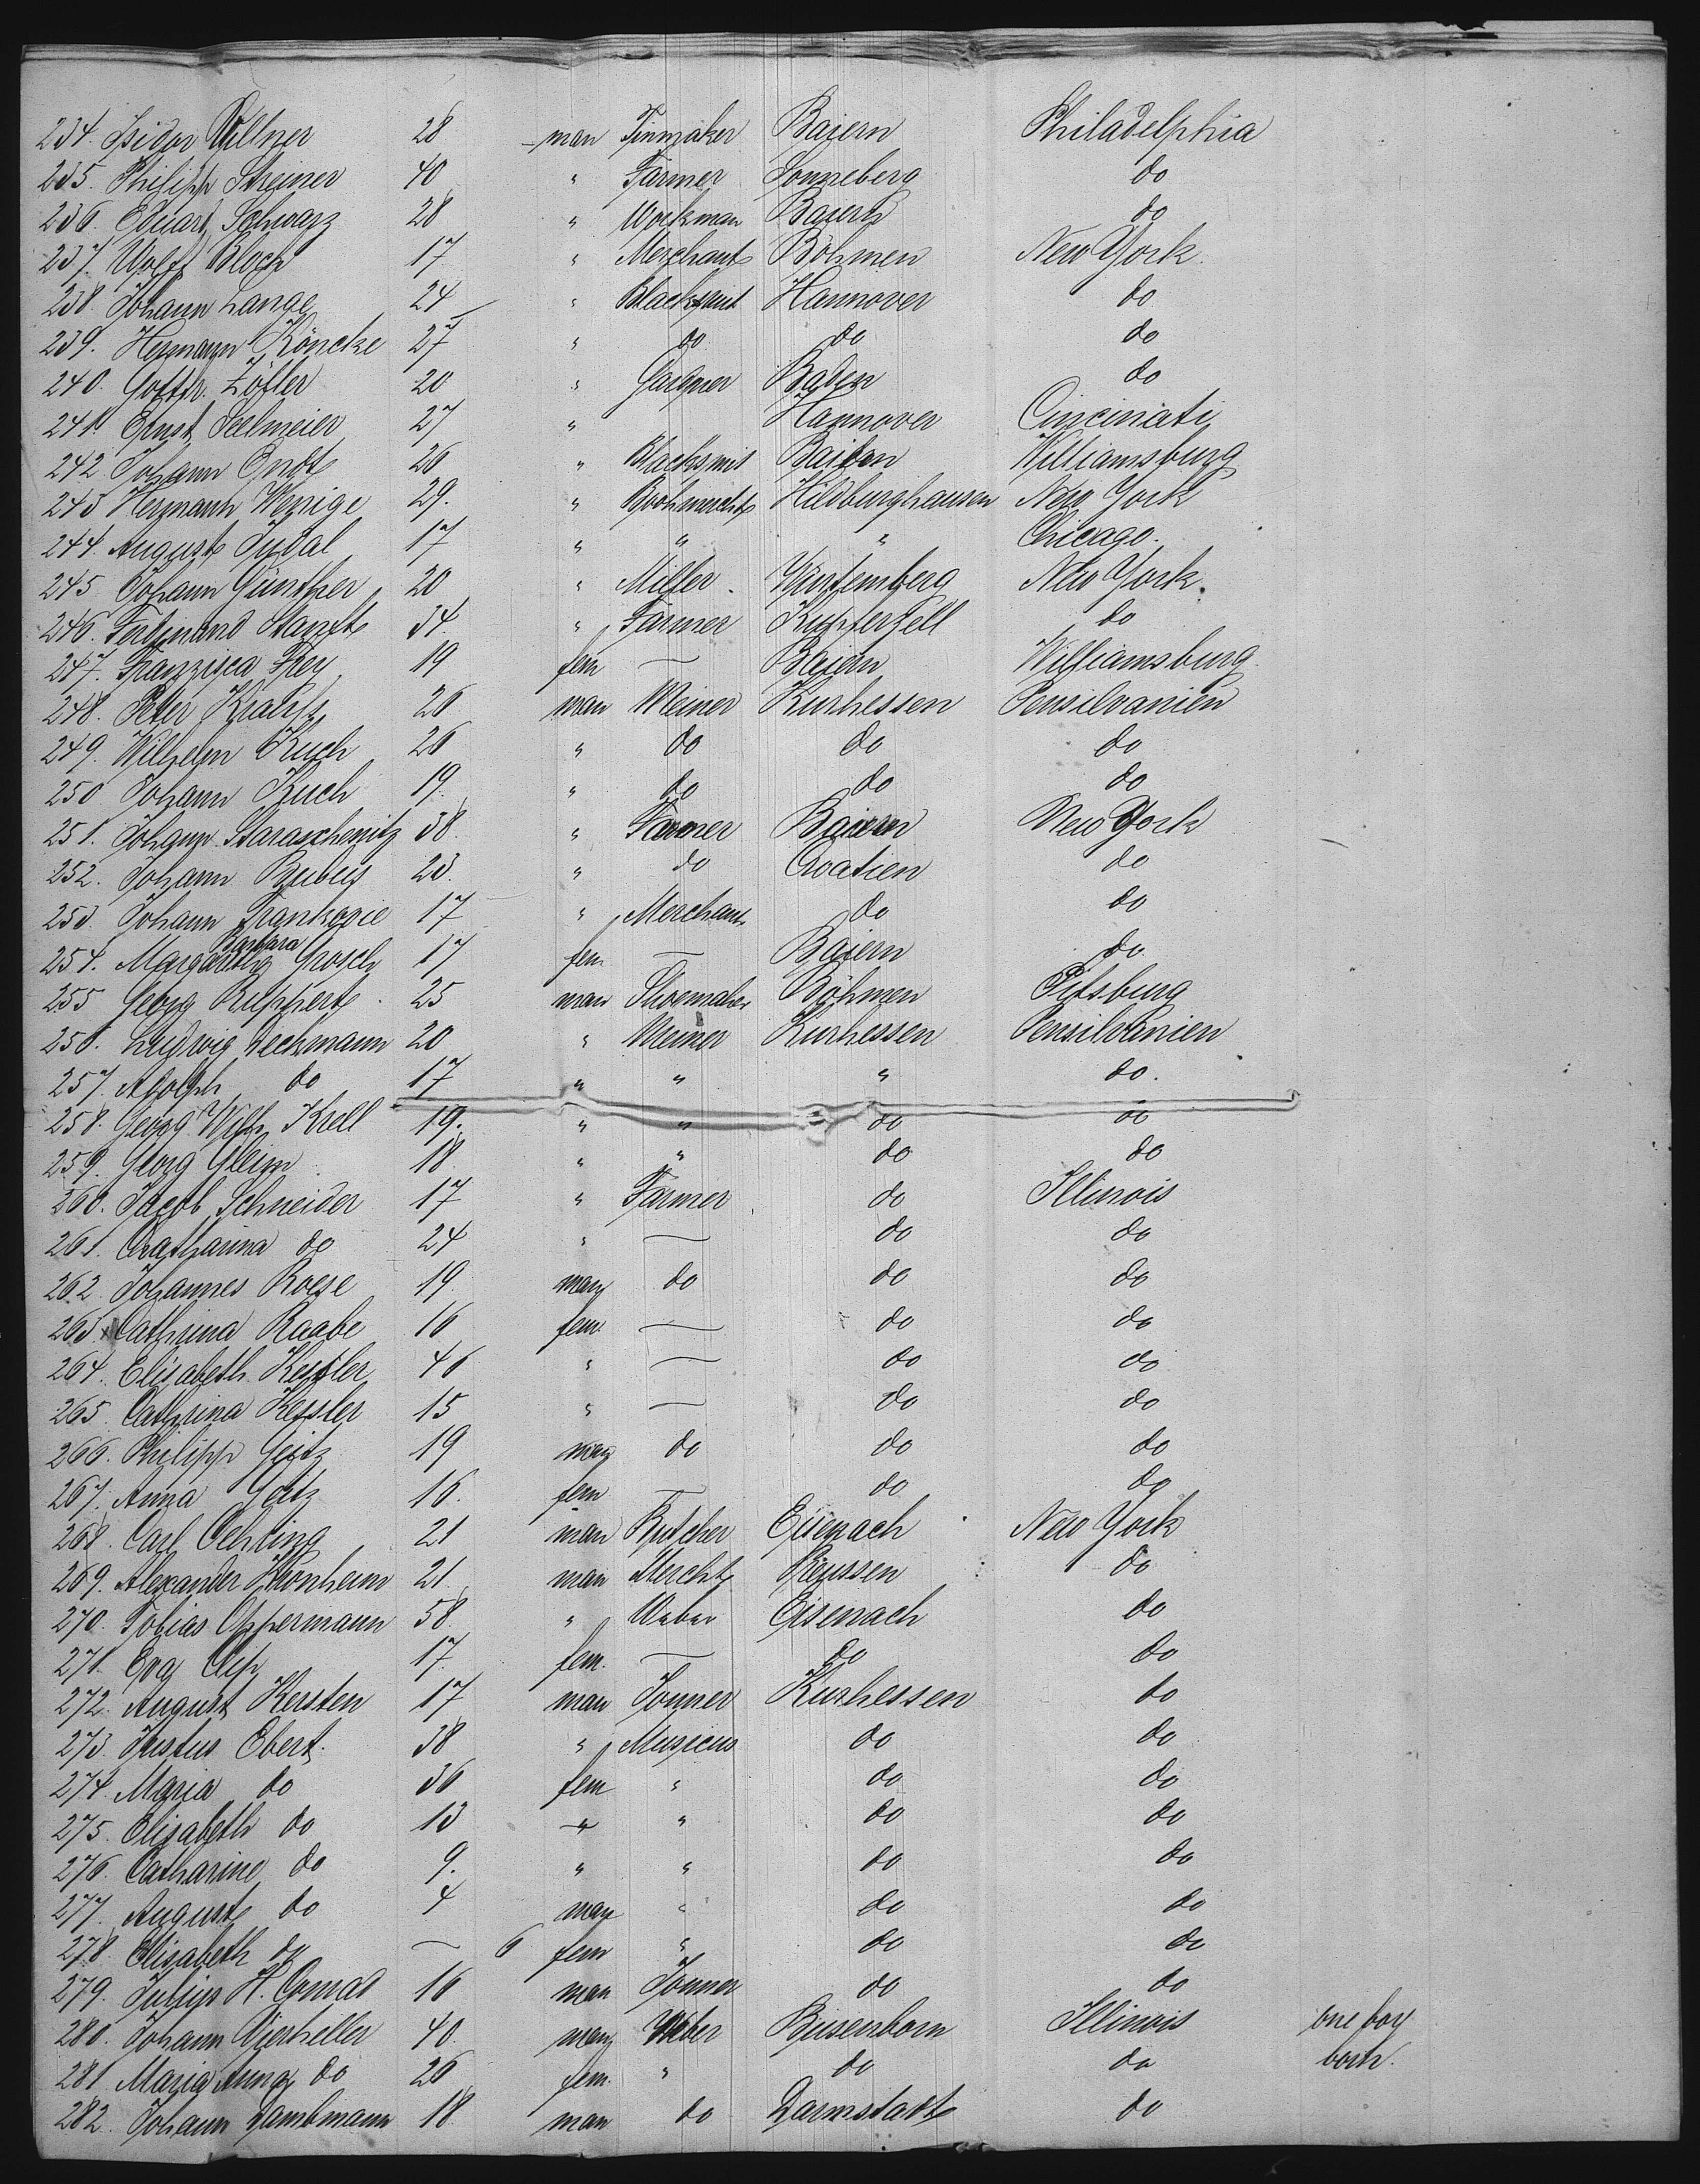 234. Isidor Willner 28 man Tinmaker Baiern Philadelphia
235. Philipp Steiner 40 " Farmer Sonneberg do
236. Eduard Schwarz 28 " Workman Baiern do
237. Wolf Bloch 17 " Merchant Böhmen New York.
238. Johann Lange 24 " Blacksmit Hannover do
239. Hermann Köncke 27 " do do do
240. Gottfr. Zöller 20 " Gardner Baden do
241. Ernst Seelmeier 27 " Hannover Cincinati
242 Johann Endt 26 " Blacksmit Williamsburg
243 Hermann Wenige 29. " Hildburghausen New York
244. August Judal 17 " " " Chicago.
245. Johann Günther 20 " Miller. Würtemberg New York.
246. Ferdinand 34. " Farmer Kupferzell do
247. Franzisca Frey 19 fem — Baiern Williamsburg.
248. Peter 26 man Meiner Kurhessen Pensilvanien
249. Wilhelm Kuch 26 " do do do
250 Johann Kuch 19. " do do do
251. Johann Staraschenitz 38. " Farmer Baiern New York
252. Johann 23. " do Croatien do
253. Johann 17 " Merchant do do
254. Margaretha Barbara Grosch 17 fem — Baiern do
255 Georg Ruppert. 25 man Shoemaker Böhmen Pitsburg
256. Ludwig Deckmann 20 " Meiner Kurhessen Pensilvanien
257. Adolph do 17 " " " do.
258. Georg Wilh. Krell 19. " " do do
259. Georg Gleim 18 " " do do
260. Jacob Schneider 17 " Farmer do Illinois
261. Catharina do 24 " — do do
262. Johannes Roese 19 man do do do
263. Cathrina Raabe 16 fem — do do
264. Elisabeth Kessler 46 " — do do
265. Cathrina Kessler 15 " — do do
266. Philipp Geitz 19 man do do do
267. Anna Geitz 16. fem — do do
268. Carl Oehling 21 man Butcher Eisenach New York
269. Alexander Kronheim 21 man Mercht Preussen do
270. Tobias Oppermann 58. " Weber Eisenach do
271. Eva 17. fem. — do do
272. August Kersten 17 man Joiner Kurhessen do
273. Justus Ebert. 38 " Musicus do do
274. Maria do 36 fem " do do
275. Elisabeth do 13 " " do do
276. Catharine do 9. " " do do
277. August do 4 man " do do
278. Elisabeth do — 6 fem " do do
279. Julius H. Conrad 16 man Joiner do do
280. Johann Vierheller 40. man Weber Busenborn Illinois one boy
281. Maria Anna do 26 fem. " do do born.
282. Johann Dambmann 18 man do Darmstadt do